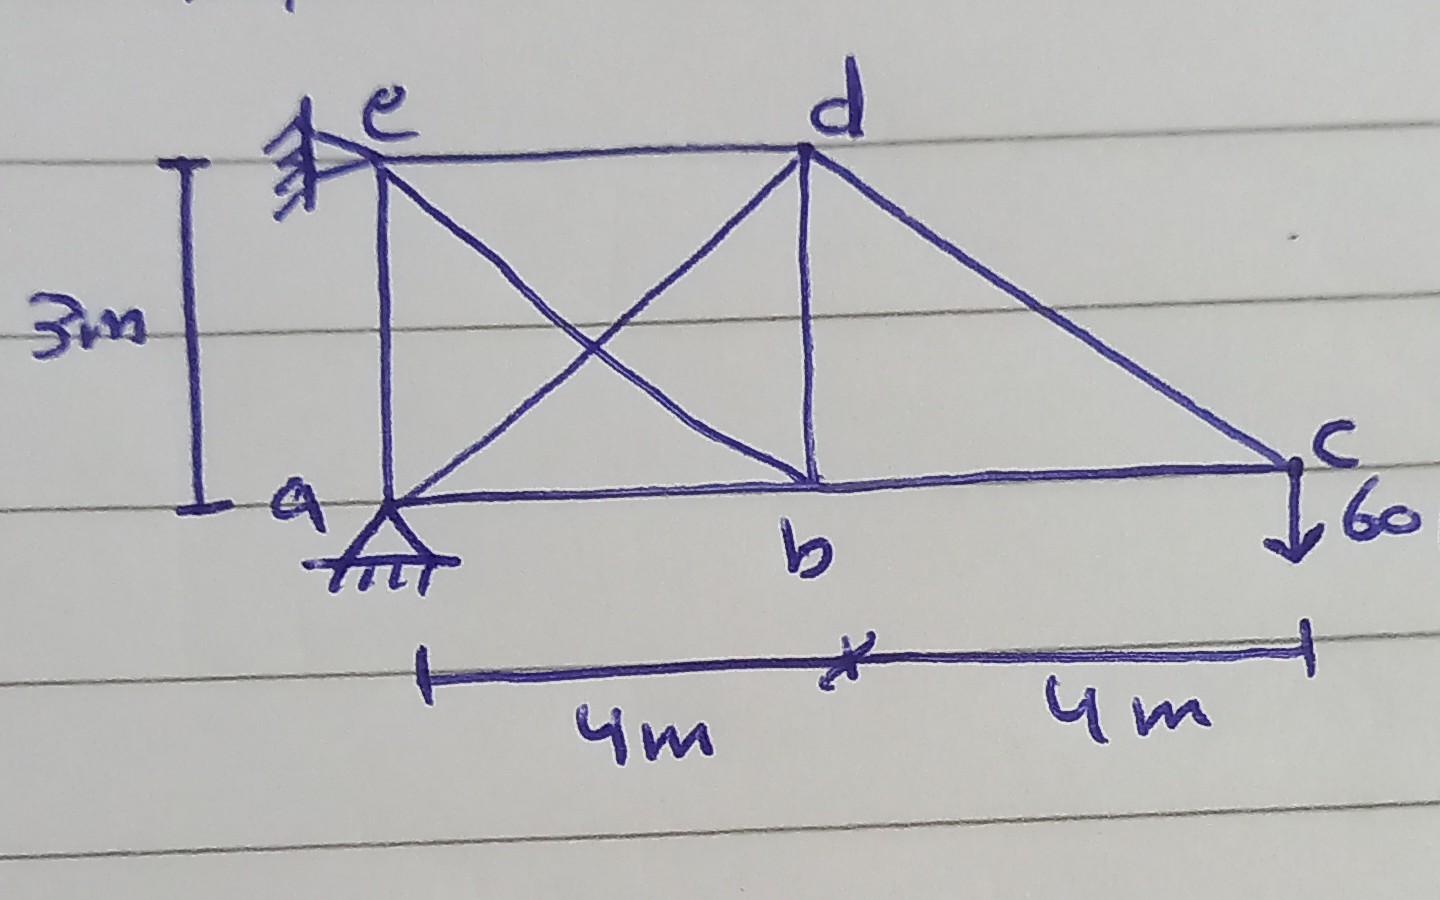 e
d
3m
a
b
c
60
4m
4m